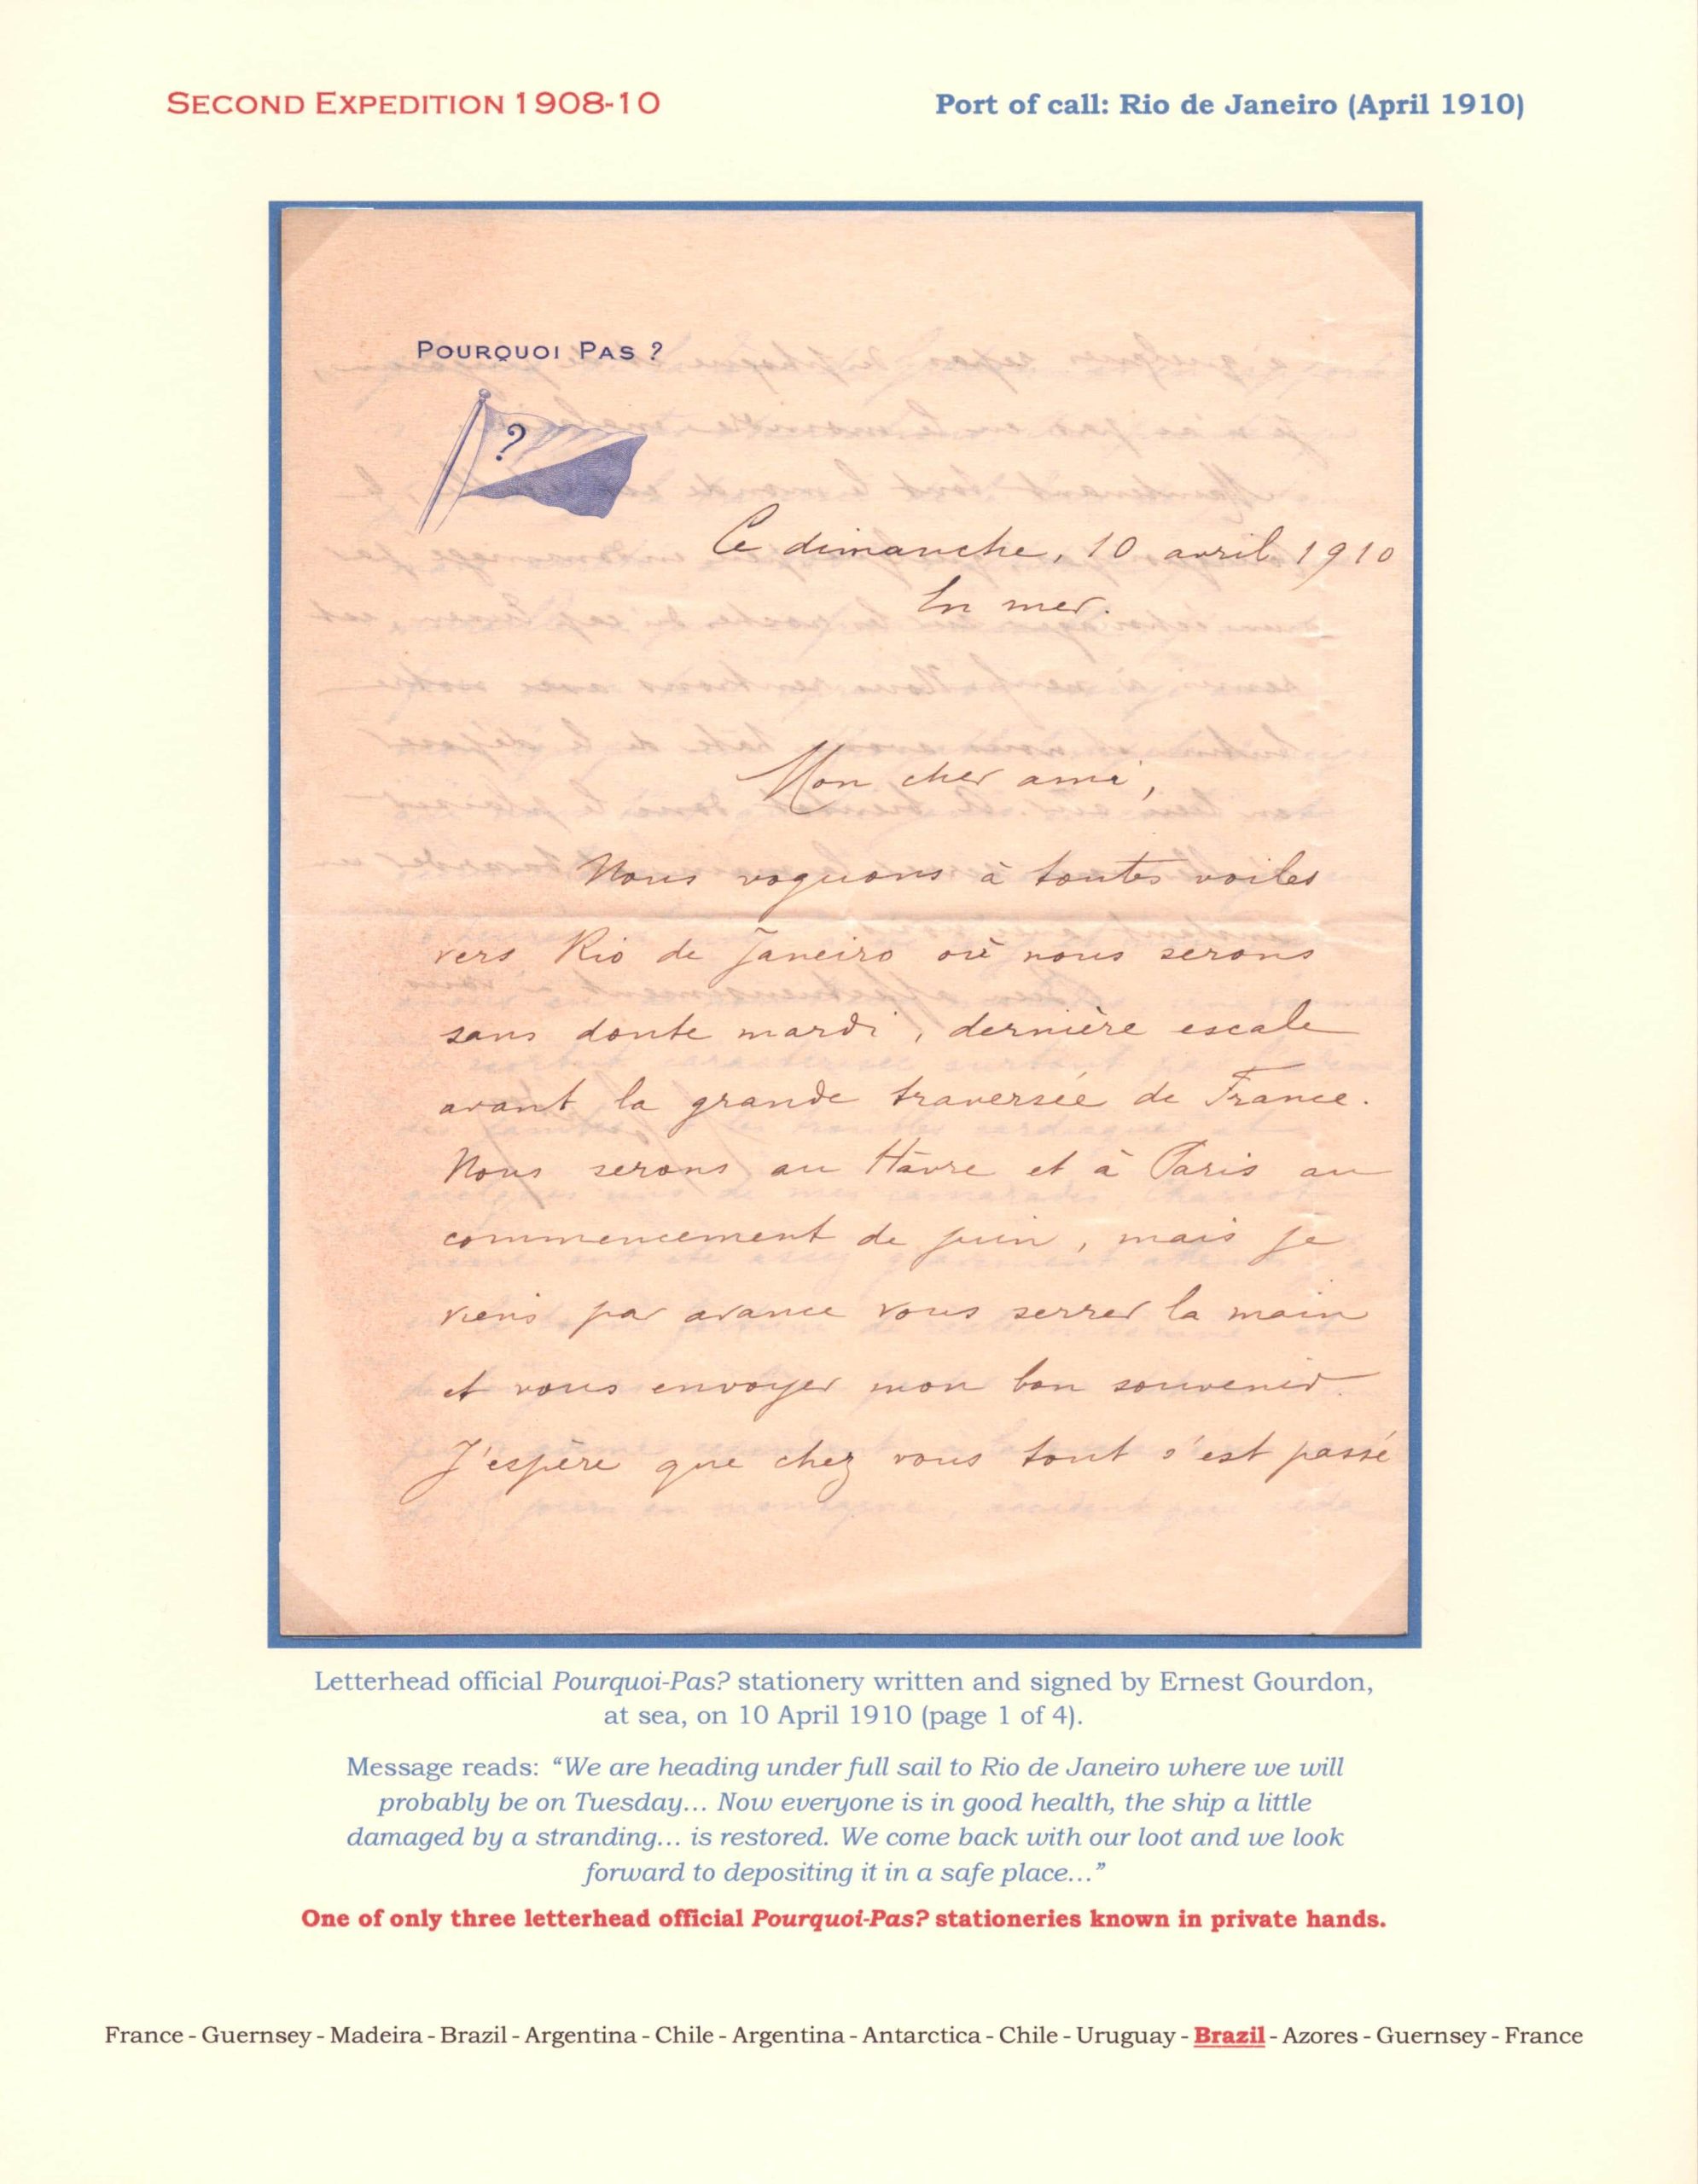 SECOND EXPEDITION 1908-10
Port of call: Rio de Janeiro (April 1910)
POURQUOI PAS ?
?
Ce dimanche, 10 avril 1910
En mer.
Mon cher ami,
Nous voguons à toutes voiles
vers Rio de Janeiro où nous serons
sans doute mardi, dernière escale
avant la grande traversée de France.
Nous serons au Hâvre et à Paris au
commencement de juin, mais je
viens par avance vous serrer la main
et vous envoyer mon bon souvenir.
J'espère que chez vous tout s'est passé
Letterhead official Pourquoi-Pas? stationery written and signed by Ernest Gourdon,
at sea, on 10 April 1910 (page 1 of 4).
Message reads: “We are heading under full sail to Rio de Janeiro where we will
probably be on Tuesday... Now everyone is in good health, the ship a little
damaged by a stranding... is restored. We come back with our loot and we look
forward to depositing it in a safe place...”
One of only three letterhead official Pourquoi-Pas? stationeries known in private hands.
France - Guernsey - Madeira - Brazil - Argentina - Chile - Argentina - Antarctica - Chile - Uruguay - Brazil - Azores - Guernsey - France